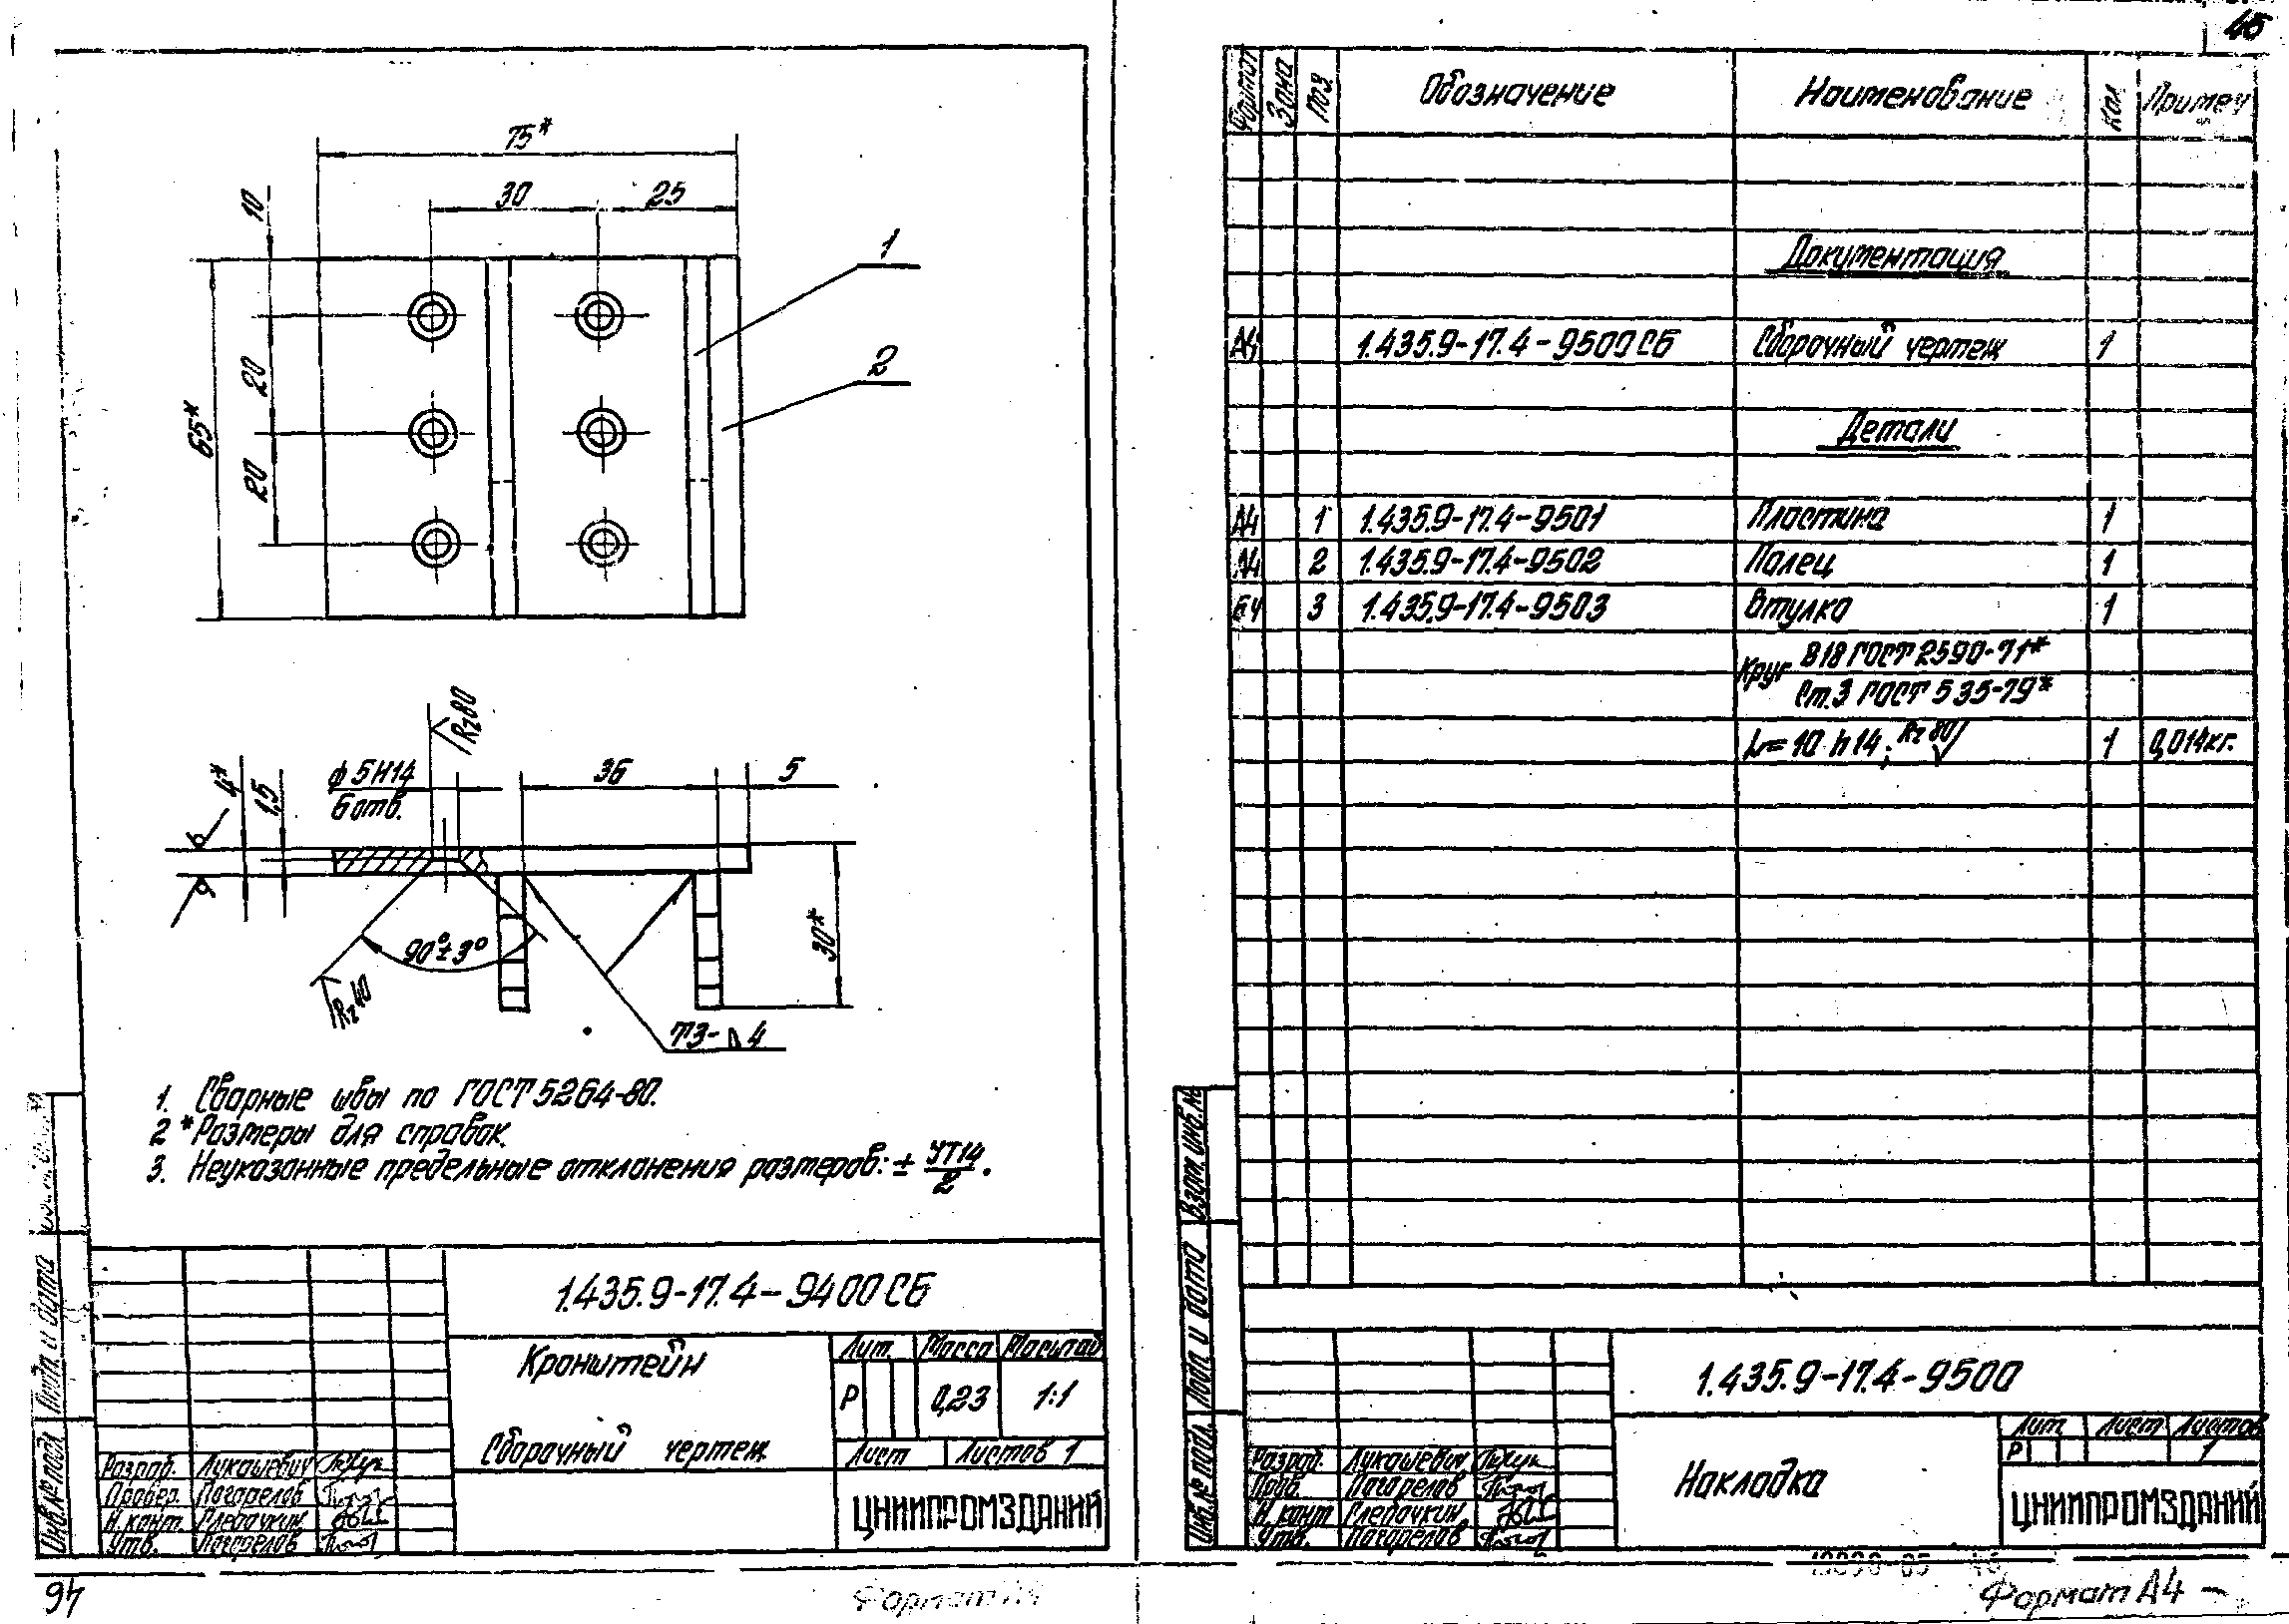 45
75*
30
25
10
1
20
2
65*
20
Rz80
4*
1,5
ф5H14
6 отв.
36
5
90°±3°
30*
Rz40
Т3-△4
1. Сварные швы по ГОСТ 5264-80.
2 *Размеры для справок.
3. Неуказанные предельные отклонения размеров: ± УТ14/2.
1.435.9-17.4-9400СБ
Кронштейн
Сборочный чертеж
Лит. Масса Масштаб
Р 0,23 1:1
Лист Листов 1
Разраб. Лукашевич
Провер. Погорелов
Н.конт. Слепочкин
Утв. Погорелов
ЦНИИПРОМЗДАНИЙ
Подп. и дата
Инв.№ подл
46
Формат А4
Формат Зона Поз. Обозначение Наименование Кол Примеч
Документация
А4 1.435.9-17.4-9500СБ Сборочный чертеж 1
Детали
А4 1 1.435.9-17.4-9501 Пластина 1
А4 2 1.435.9-17.4-9502 Палец 1
БЧ 3 1.435.9-17.4-9503 Втулка 1
Круг В18 ГОСТ 2590-71*
Ст.3 ГОСТ 535-79*
L=10 h14; Rz80 1 0,014кг.
Взам. инв. №
Подп. и дата
Инв.№ подл.
1.435.9-17.4-9500
Накладка
Лит Лист Листов
Р 1
Разраб. Лукашевич
Пров. Погорелов
Н.конт Слепочкин
Утв. Погорелов
ЦНИИПРОМЗДАНИЙ
Формат А4